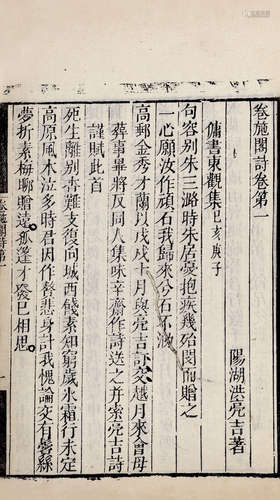 卷施閣詩卷第一
陽湖洪亮吉著
傭書東觀集 己亥 庚子
句容别朱三潞時朱居憂抱疾幾殆閔而贈之
一心願汝作頑石我歸來兮石不泐
高郵金秀才蘭以戊戌十月與亮吉訂交越月來會母
葬事畢將反同人集味辛齋作詩送之并索亮吉詩
謹賦此首
死生離别苦難支復向城西餞素知窮歲氷霜行未定
高原風木泣多時君因作督悲身計我愧論交有鬢絲
夢折素梅聊贈遠孤蓬才發已相思
卷施閣詩第一